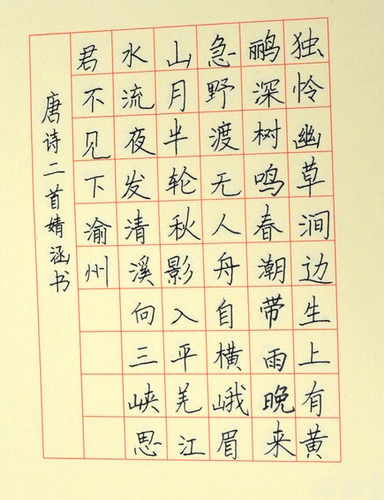 独怜幽草涧边生上有黄
鹂深树鸣春潮带雨晚来
急野渡无人舟自横峨眉
山月半轮秋影入平羌江
水流夜发清溪向三峡思
君不见下渝州
唐诗二首婧涵书